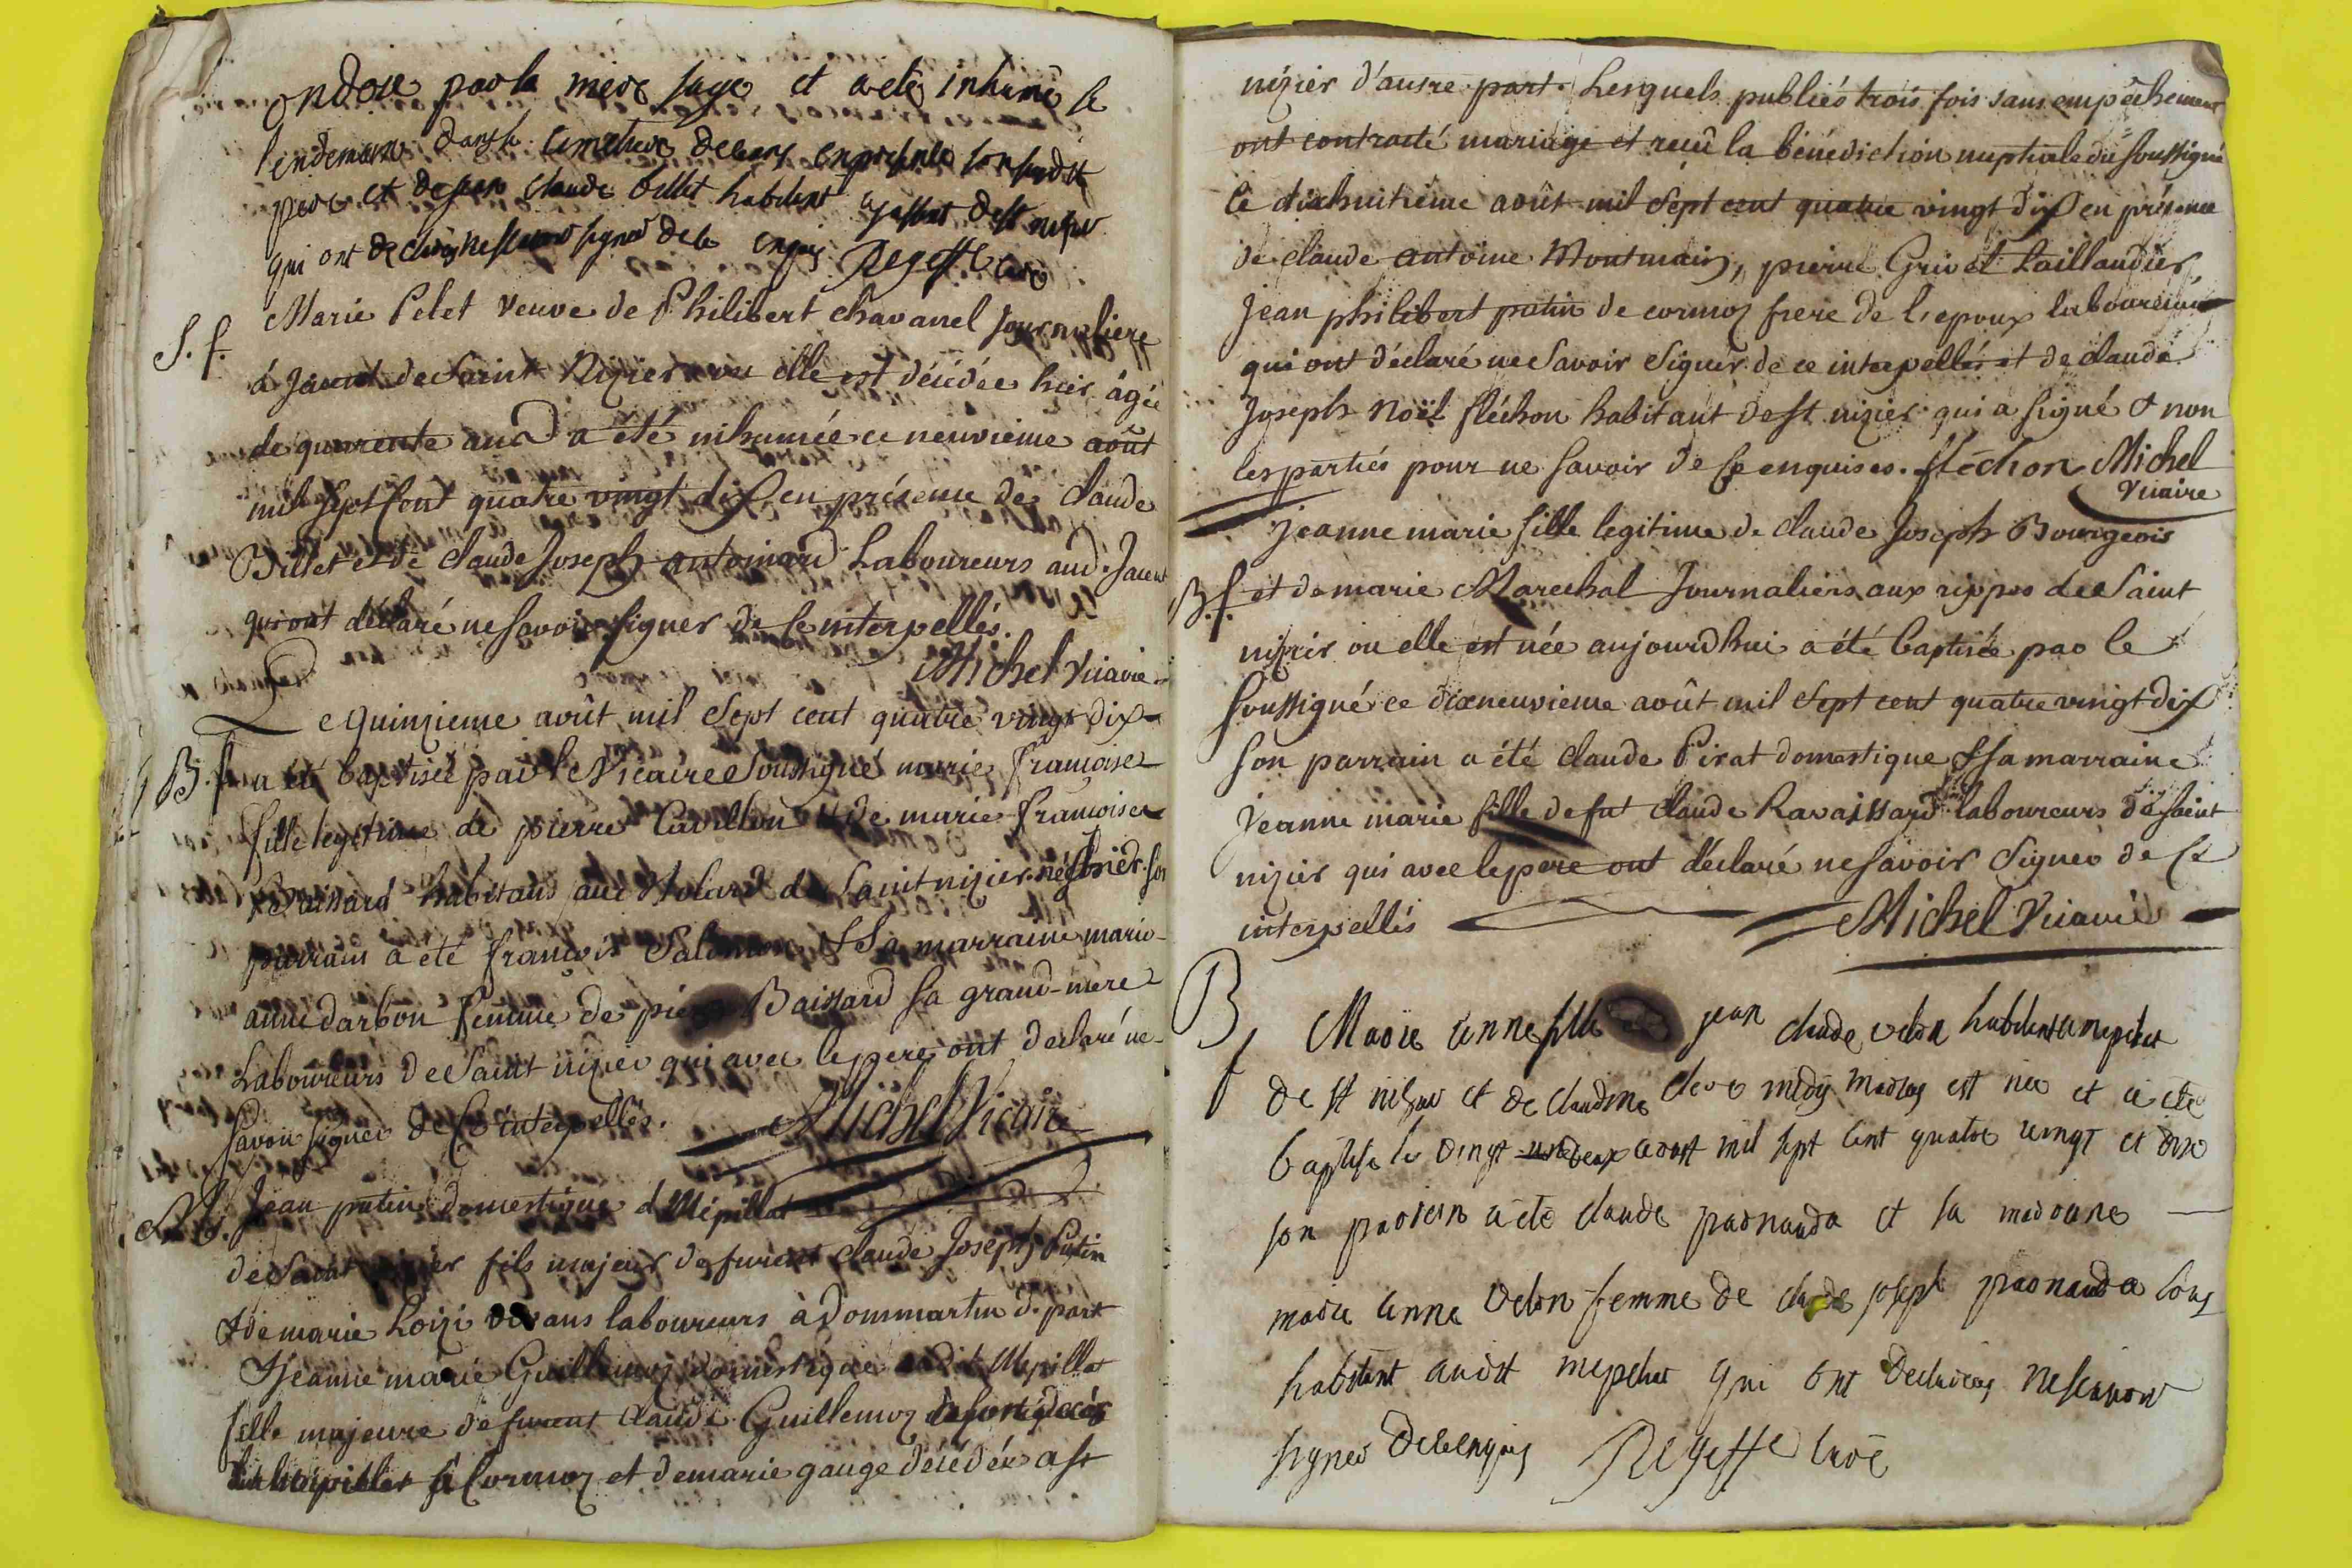 ondoié par la mere sage et a eté inhumé le
lendemain dans le cimetiere de ceans en presence son susdt
pere et de jean claude billet habitant a jassent de st nizier
qui ont declarés ne scavoir signer de ce enquis Regeffe curé
S. f.
Marie Petet veuve de Philibert chavanel journaliere
á Jacent de Saint Nizier ou elle est décédée hier âgée
de quarente ans a été inhumée ce neuvieme août
mil sept cent quatre vingt dix en présence de claude
Billet et de claude Joseph antoinard Laboureurs aud. Jacent
qui ont déclaré ne savoir signer de ce interpellés.
Michel Vicaire
Le quinzieme août mil sept cent quatre vingt dix
B. f.
a été baptisée par le Vicaire soussigné marie françoise
fille legitime de pierre Cavillon et de marie françoise
Baissard habitans aux Molard de Saint nizier son
parrain a été françois Salomon & sa marraine marie
anne darbon femme de pierre Baissard sa grand-mere
Laboureurs de Saint nizier qui avec le pere ont declaré ne
savoir signer de ce interpellés. Michel Vicaire
M.
Jean putin domestique á Mépillat
de Saint nizier fils majeur de furent claude Joseph Putin
& de marie Loizi laboureurs à Dommartin d. part
& Jeanne marie Guillemoz domestique audit Mepillat
fille majeure de furent claude Guillemoz
à Cormoz et de marie gauge décédée a st
nizier d'autre part. Lesquels publiés trois fois sans empêchement
ont contracté mariage et reçu la bénédiction nuptiale du soussigné
le dixhuitième août mil sept cent quatre vingt dix en présence
de claude antoine Montmain, pierre Grivet taillandier,
Jean philibert putin de cormoz frere de l'epoux laboureurs
qui ont déclaré ne savoir signer de ce interpellés et de claude
Joseph Noël fléchon habitant de st nizier qui a signé & non
les parties pour ne savoir de ce enquises. fléchon Michel
Vicaire
Jeanne marie fille legitime de claude Joseph Bourgeois
B. f.
et de marie Marechal Journaliers aux rippes de Saint
nizier ou elle est née aujourdhui a été baptisée par le
soussigné ce dixneuvieme août mil sept cent quatre vingt dix
son parrain a été claude Pirat domestique & sa marraine
Jeanne marie fille de fut claude Ravaissard laboureurs de saint
nizier qui avec le pere ont déclaré ne savoir signer de ce
interpellés Michel Vicaire
B
f
Marie anne fille jean claude velon habitant a mepelat
de st nizier et de claudine est née et a été
baptisée le vingt deux aoust mil sept cent quatre vingt et dix
son parrein a eté claude parnauda et sa marreine
marie anne velon femme de claude joseph parnauda tous
habitant audt mepelat qui ont declarés ne scavoir
signer de ce enquis Regeffe curé